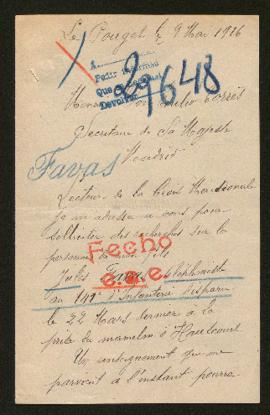 Le Pouget le 9 Mai 1916
A
Pedir
Que
Devolver
29648
Monsieur Emilio Torrès
Secrétaire de Sa Majesté
Madrid
Favas
Lecteur de la Croix Meridionale
je m'adresse a vous pour
solliciter des recherches sur la
personne de mon fils
Fecho
Jules Favas téléphoniste
e.a.e.
au 141e d'Infanterie disparu
le 22 Mars dernier a la
prise du mamelon d'Haucourt
Un renseignement qui me
parvient à l'instant pourra